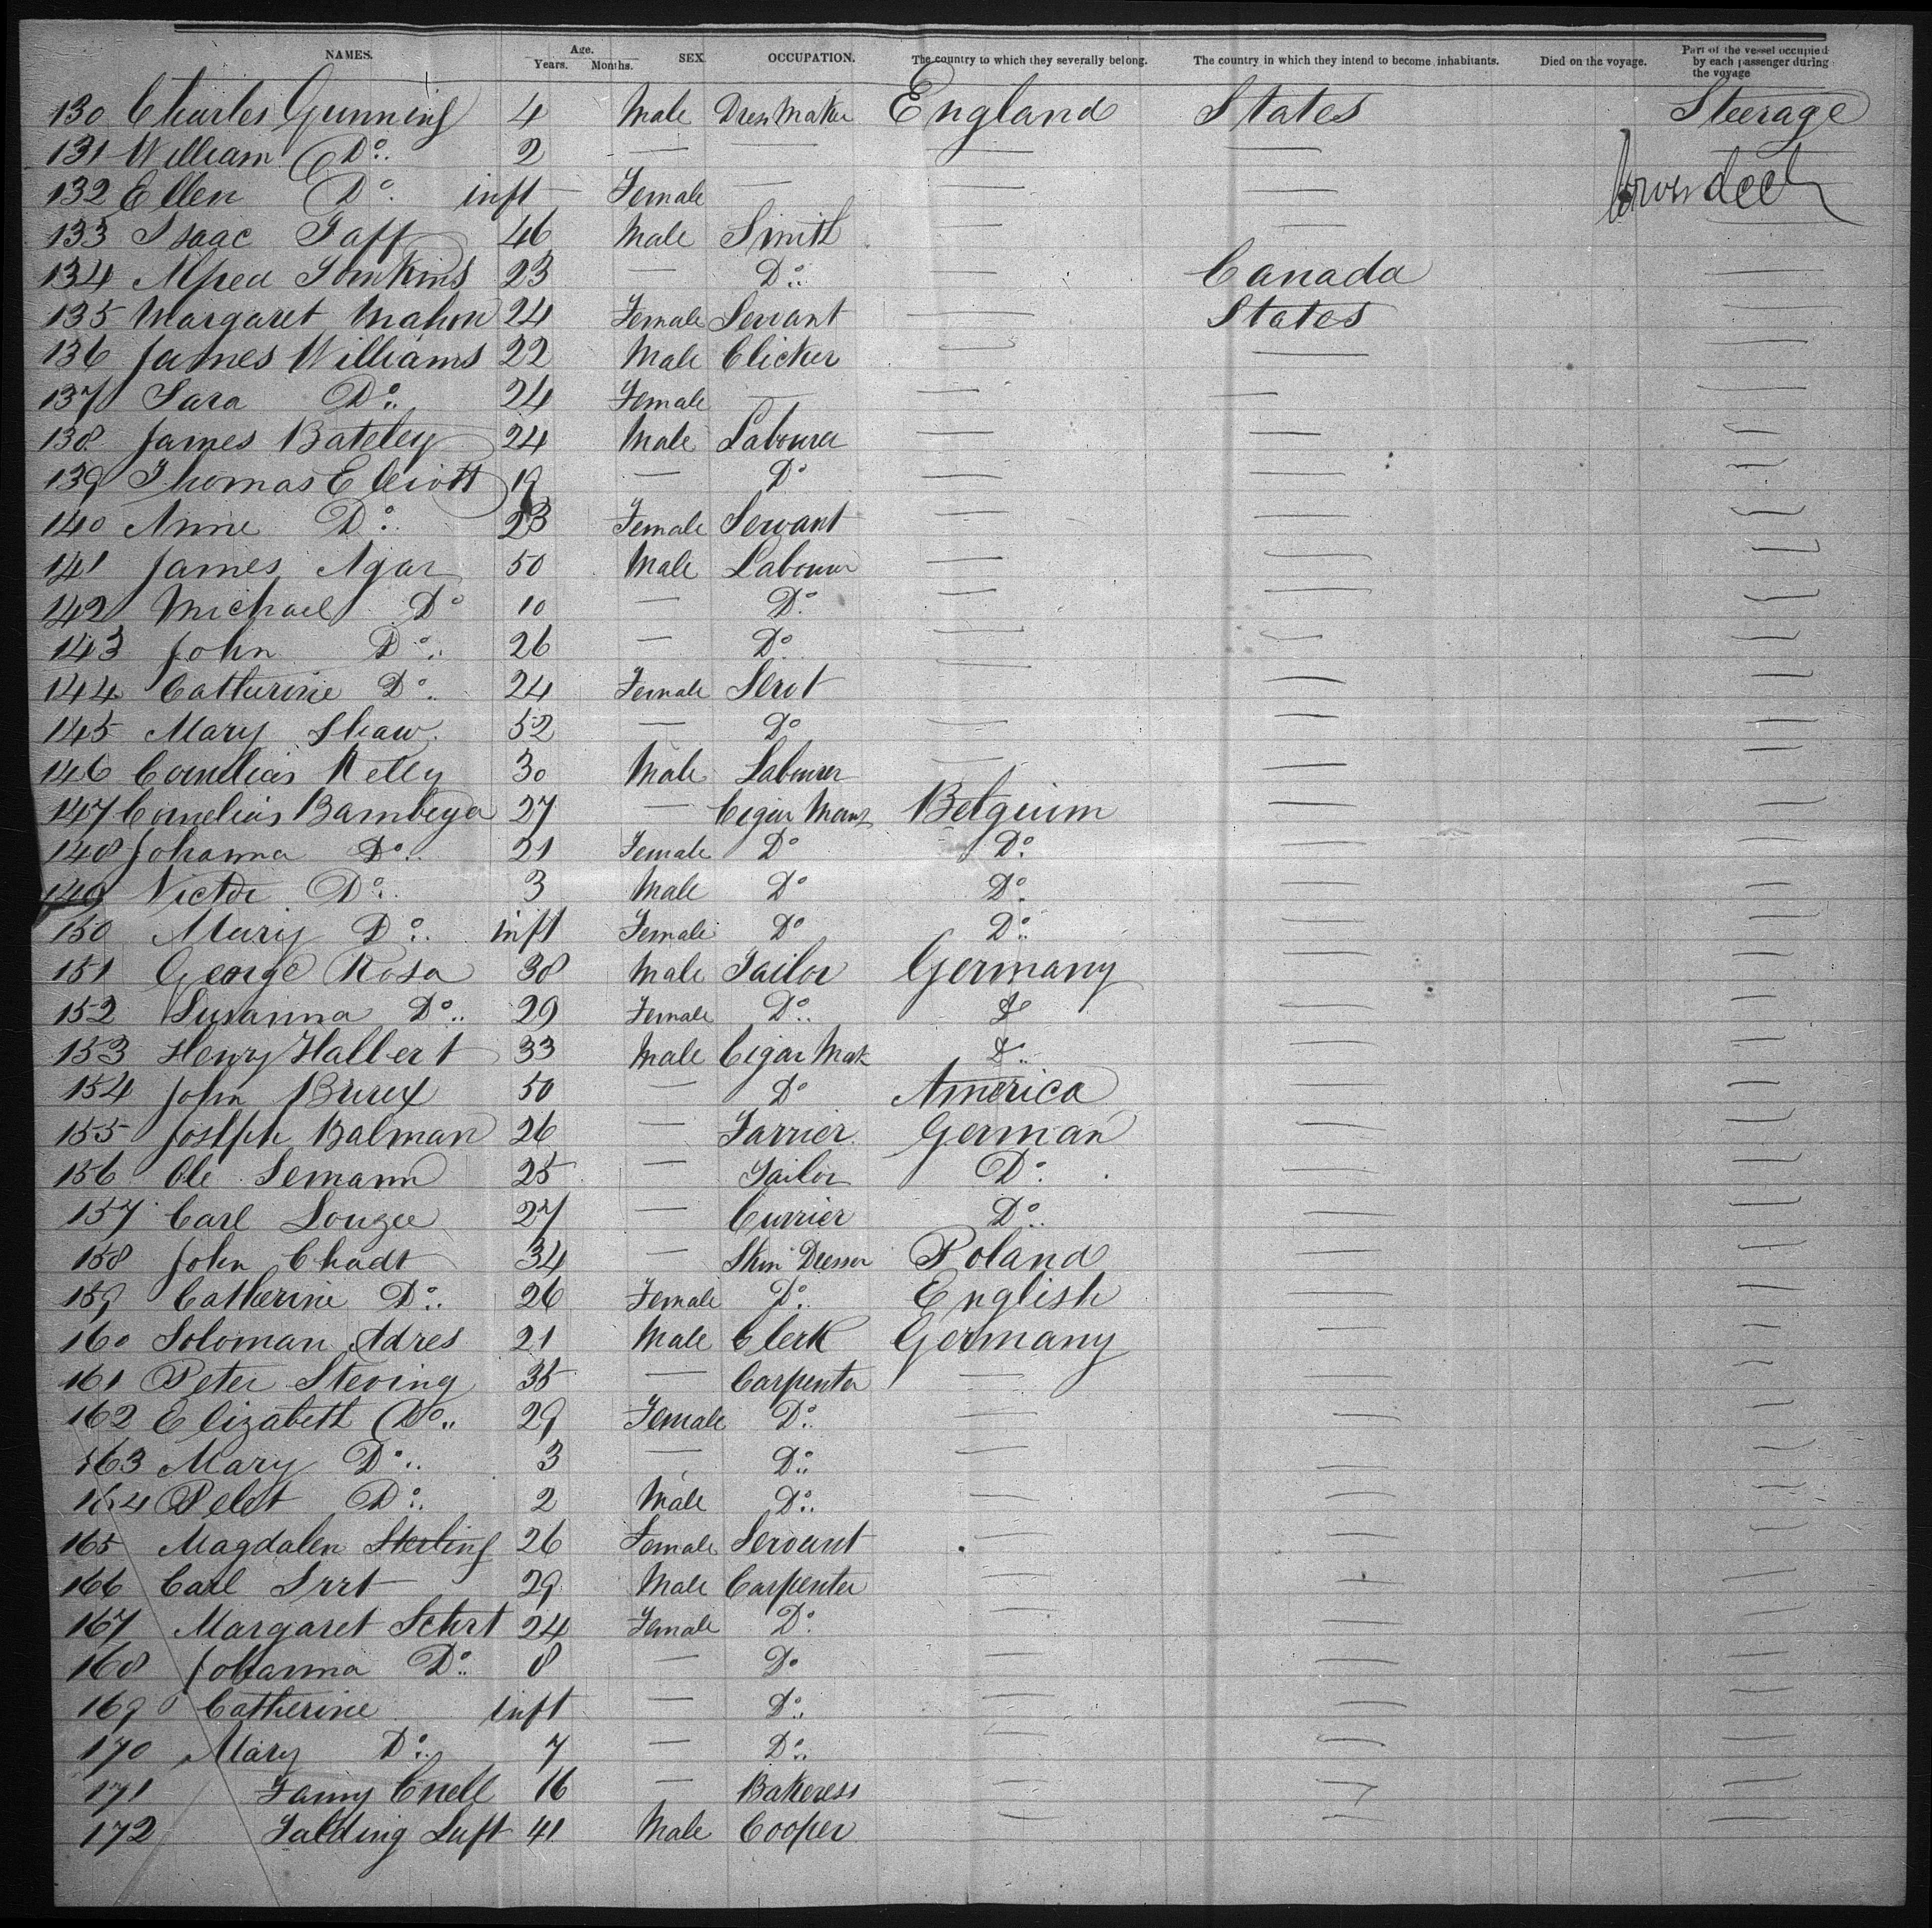 NAMES. Age. Years. Months. SEX. OCCUPATION. The country to which they severally belong. The country in which they intend to become inhabitants. Died on the voyage. Part of the vessel occupied by each passenger during the voyage
130 Charles Gunning 4 Male Dress Maker England States Steerage
131 William Do. 2 — — — — —
132 Ellen Do. inft Female — — — deck
133 Isaac Taff 46 Male Smith — — —
134 Alfred Tomkins 23 — Do. — Canada —
135 Margaret Mahon 24 Female Servant — States —
136 James Williams 22 Male Clicker — — —
137 Sara Do. 24 Female — — — —
138 James Bateley 24 Male Labourer — — —
139 Thomas Elliott 19 — Do — — —
140 Anne Do. 23 Female Servant — — —
141 James Agar 50 Male Labourer — — —
142 Michael Do 10 — Do. — — —
143 John Do. 26 — Do — — —
144 Catherine Do. 24 Female Servt — — —
145 Mary Shaw. 52 — Do — — —
146 Cornelius Kelly 30 Male Labourer — — —
147 Cornelias Bambeya 27 — Cigar Belguim — —
148 Johanna Do. 21 Female Do Do. — —
149 Victor Do. 3 Male Do Do. — —
150 Mary Do. inft Female Do Do. — —
151 George Rosa 38 Male Tailor Germany — —
152 Susanna Do. 29 Female Do. Do — —
153 Henry Halbert 33 Male Cigar Mak Do. — —
154 John 50 — Do America — —
155 Joseph Balman 26 — Farrier German — —
156 Ole Semann 25 — Tailor Do. — —
157 Carl 27 — Currier Do. — —
158 John Chadt 34 — Skin Dresser Poland — —
159 Catherine Do. 26 Female Do. English — —
160 Soloman Adres 21 Male Clerk Germany — —
161 Peter Steving 35 — Carpenter — — —
162 Elizabeth Do.. 29 Female Do. — — —
163 Mary Do. 3 — Do. — — —
164 Do. 2 Male Do. — — —
165 Magdalen Sterling 26 Female Servant — — —
166 Carl Srrt 29 Male Carpenter — — —
167 Margaret Schrt 24 Female Do. — — —
168 Johanna Do. 8 — Do — — —
169 Catherine inft — Do. — — —
170 Mary Do. 7 — Do. — — —
171 Fanny Cnell 16 — Bakeress — — —
172 Falding Luft 41 Male Cooper — — —